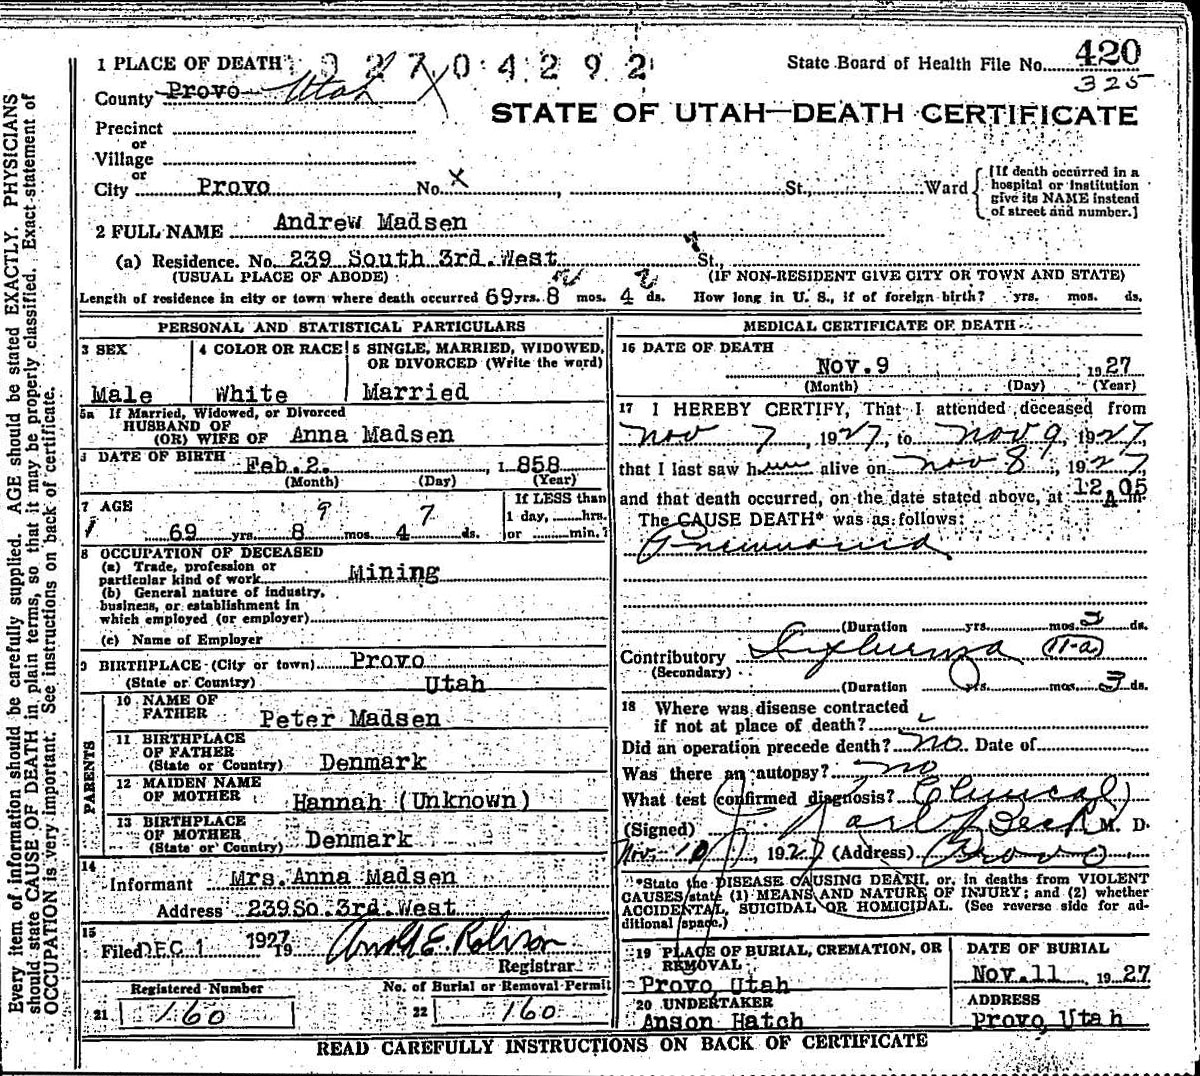 Every item of information should be carefully supplied. AGE should be stated EXACTLY. PHYSICIANS
should state CAUSE OF DEATH in plain terms, so that it may be properly classified. Exact statement of
OCCUPATION is very important. See instructions on back of certificate.
1 PLACE OF DEATH 927 04292
State Board of Health File No. 420
325
County Provo Utah X
STATE OF UTAH—DEATH CERTIFICATE
Precinct
or
Village
or
City Provo No. X St., Ward
[If death occurred in a
hospital or institution
give its NAME instead
of street and number.]
2 FULL NAME Andrew Madsen
(a) Residence. No. 239 South 3rd. West St.,
(USUAL PLACE OF ABODE) (IF NON-RESIDENT GIVE CITY OR TOWN AND STATE)
Length of residence in city or town where death occurred 69 yrs. 8 mos. 4 ds. How long in U. S., if of foreign birth? yrs. mos. ds.
PERSONAL AND STATISTICAL PARTICULARS
3 SEX 4 COLOR OR RACE 5 SINGLE, MARRIED, WIDOWED,
OR DIVORCED (Write the word)
Male White Married
5a If Married, Widowed, or Divorced
HUSBAND OF
(OR) WIFE OF Anna Madsen
6 DATE OF BIRTH Feb. 2. , 1858
(Month) (Day) (Year)
7 AGE 9 7
If LESS than
1 day, hrs.
69 yrs. 8 mos. 4 ds. or min.?
8 OCCUPATION OF DECEASED
(a) Trade, profession or
particular kind of work Mining
(b) General nature of industry,
business, or establishment in
which employed (or employer)
(c) Name of Employer
9 BIRTHPLACE (City or town) Provo
(State or Country) Utah
PARENTS
10 NAME OF
FATHER Peter Madsen
11 BIRTHPLACE
OF FATHER
(State or Country) Denmark
12 MAIDEN NAME
OF MOTHER Hannah (Unknown)
13 BIRTHPLACE
OF MOTHER
(State or Country) Denmark
14
Informant Mrs. Anna Madsen
Address 239 So. 3rd. West
15
Filed DEC 1 1927 19
Registrar
Registered Number No. of Burial or Removal Permit
21 160 22 160
MEDICAL CERTIFICATE OF DEATH
16 DATE OF DEATH
Nov. 9 1927
(Month) (Day) (Year)
17 I HEREBY CERTIFY, That I attended deceased from
Nov 7, 1927, to Nov 9, 1927,
that I last saw him alive on Nov 8, 1927,
and that death occurred, on the date stated above, at 12 05 A m.
The CAUSE DEATH* was as follows:
Pneumonia
(Duration yrs. mos. ds.
Contributory Influenza (11-a)
(Secondary)
(Duration yrs. mos. 3 ds.
18 Where was disease contracted
if not at place of death?
Did an operation precede death? no Date of
Was there an autopsy? no
What test confirmed diagnosis? Clinical
(Signed) Karl Beck M. D.
Nov. 10, 1927 (Address) Provo
*State the DISEASE CAUSING DEATH, or, in deaths from VIOLENT
CAUSES state (1) MEANS AND NATURE OF INJURY; and (2) whether
ACCIDENTAL, SUICIDAL OR HOMICIDAL. (See reverse side for ad-
ditional space.)
19 PLACE OF BURIAL, CREMATION, OR
REMOVAL
Provo, Utah
DATE OF BURIAL
Nov. 11 1927
20 UNDERTAKER
Anson Hatch
ADDRESS
Provo, Utah
READ CAREFULLY INSTRUCTIONS ON BACK OF CERTIFICATE